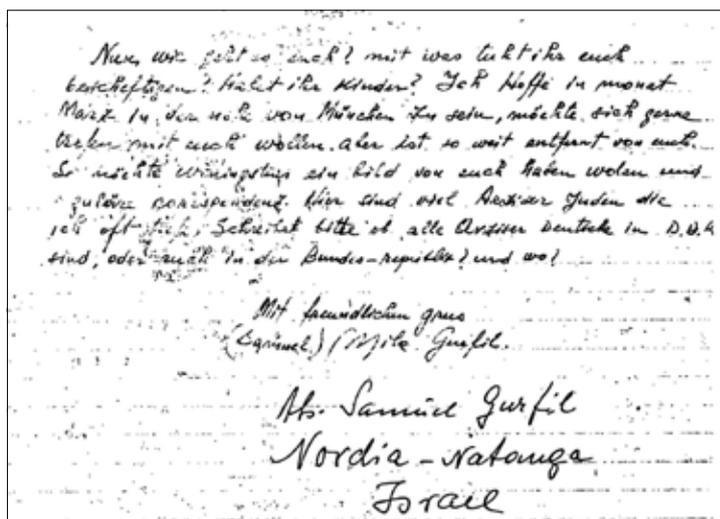 Nun, wie geht es euch? mit was tuht ihr euch
bescheftigen? Habt ihr Kinder? Ich Hoffe in monat
März in der nehe von München zu sein, möchte sich gerne
trefen mit euch wollen. aber ist so weit entfernt von euch.
So möchte winingstins ein bild von euch haben wolen und
Hier sind viel Arziser Juden die
ich oft Schreibt bitte ob alle Arziser Deutsche in D.D.R
sind, oder auch in der Bundes-republik? und wo?
Mit freundlichen grus
Mila Gurfil.
Abs. Samuel Gurfil
Nordia - Natanya
Israel